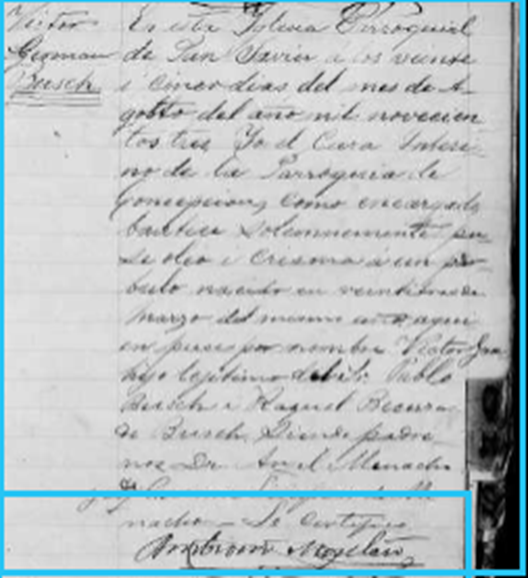 Victor
German
Busch.
En esta Iglesia Parroquial
de San Javier á los veinte
i cinco dias del mes de A-
gosto del año mil novecien
tos tres Yo el Cura Interi-
no de la Parroquia de
Concepcion, como encargado
bautice solemnemente pu-
se oleo i crisma á un pár-
bulo nacido en
Marzo del mismo año, aqui
en puse por nombre Victor
hijo lejitimo del Sr Pablo
Busch i Raquel Becerra
de Busch, Siendo padri
nos Dr. Menacho
de Me
nacho — Lo Certifico